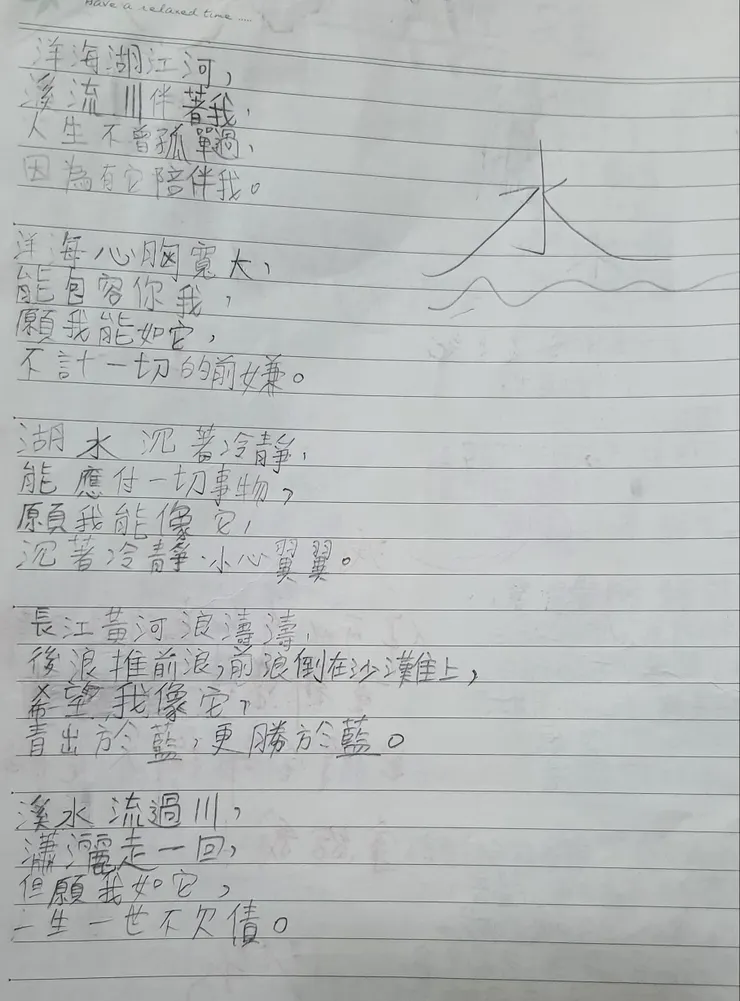 Have a relaxed time .....
洋海湖江河，
溪流川伴著我，
人生不曾孤單過，
因為有它陪伴我。
水
洋海心胸寬大，
能包容你我，
願我能如它，
不計一切的前嫌。
湖水沉著冷靜，
能應付一切事物，
願我能像它，
沉著冷靜小心翼翼。
長江黃河浪濤濤，
後浪推前浪，前浪倒在沙灘上，
希望我像它，
青出於藍，更勝於藍。
溪水流過川，
瀟灑走一回，
但願我如它，
一生一世不欠債。